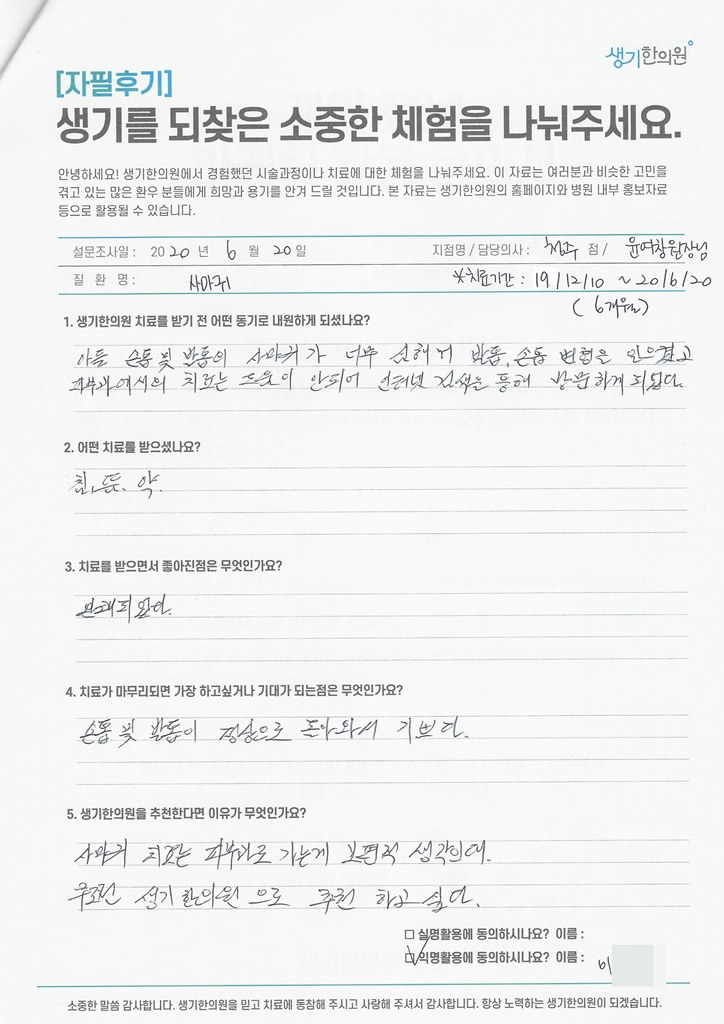 생기한의원
[자필후기]
생기를 되찾은 소중한 체험을 나눠주세요.
안녕하세요! 생기한의원에서 경험했던 시술과정이나 치료에 대한 체험을 나눠주세요. 이 자료는 여러분과 비슷한 고민을
겪고 있는 많은 환우 분들에게 희망과 용기를 안겨 드릴 것입니다. 본 자료는 생기한의원의 홈페이지와 병원 내부 홍보자료
등으로 활용될 수 있습니다.
설문조사일 : 2020 년 6 월 20 일 지점명 / 담당의사 : 청주 점 / 윤여창원장님
질 환 명 : 사마귀 *치료기간 : 19/12/10 ~ 20/6/20
( 6개월)
1. 생기한의원 치료를 받기 전 어떤 동기로 내원하게 되셨나요?
아들 손톱 및 발톱에 사마귀가 너무 심해서 발톱, 손톱 변형은 있으
피부과에서의 치료는 도움이 안되어 인터넷 검색을 통해 방문하게 되었다.
2. 어떤 치료를 받으셨나요?
침, 뜸, 약.
3. 치료를 받으면서 좋아진점은 무엇인가요?
완쾌되었다.
4. 치료가 마무리되면 가장 하고싶거나 기대가 되는점은 무엇인가요?
손톱 및 발톱이 정상으로 돌아와서 기쁘다.
5. 생기한의원을 추천한다면 이유가 무엇인가요?
사마귀 치료는 피부과로 가는게 보편적 생각인데.
무조건 생기한의원 으로 추천 하고 싶다.
□ 실명활용에 동의하시나요? 이름 :
☑ 익명활용에 동의하시나요? 이름 : 이
소중한 말씀 감사합니다. 생기한의원을 믿고 치료에 동참해 주시고 사랑해 주셔서 감사합니다. 항상 노력하는 생기한의원이 되겠습니다.